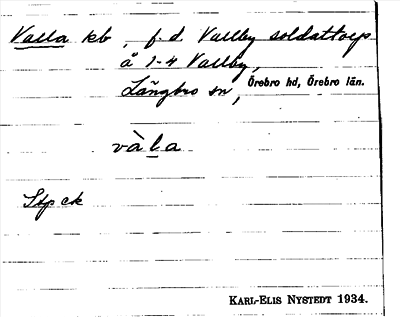 Valla kb, f.d. Vallby soldattorp
å 1-4 Vallby,
Längbro sn, Örebro hd, Örebro län.
vàl̲a
Stp ek
KARL-ELIS NYSTEDT 1934.